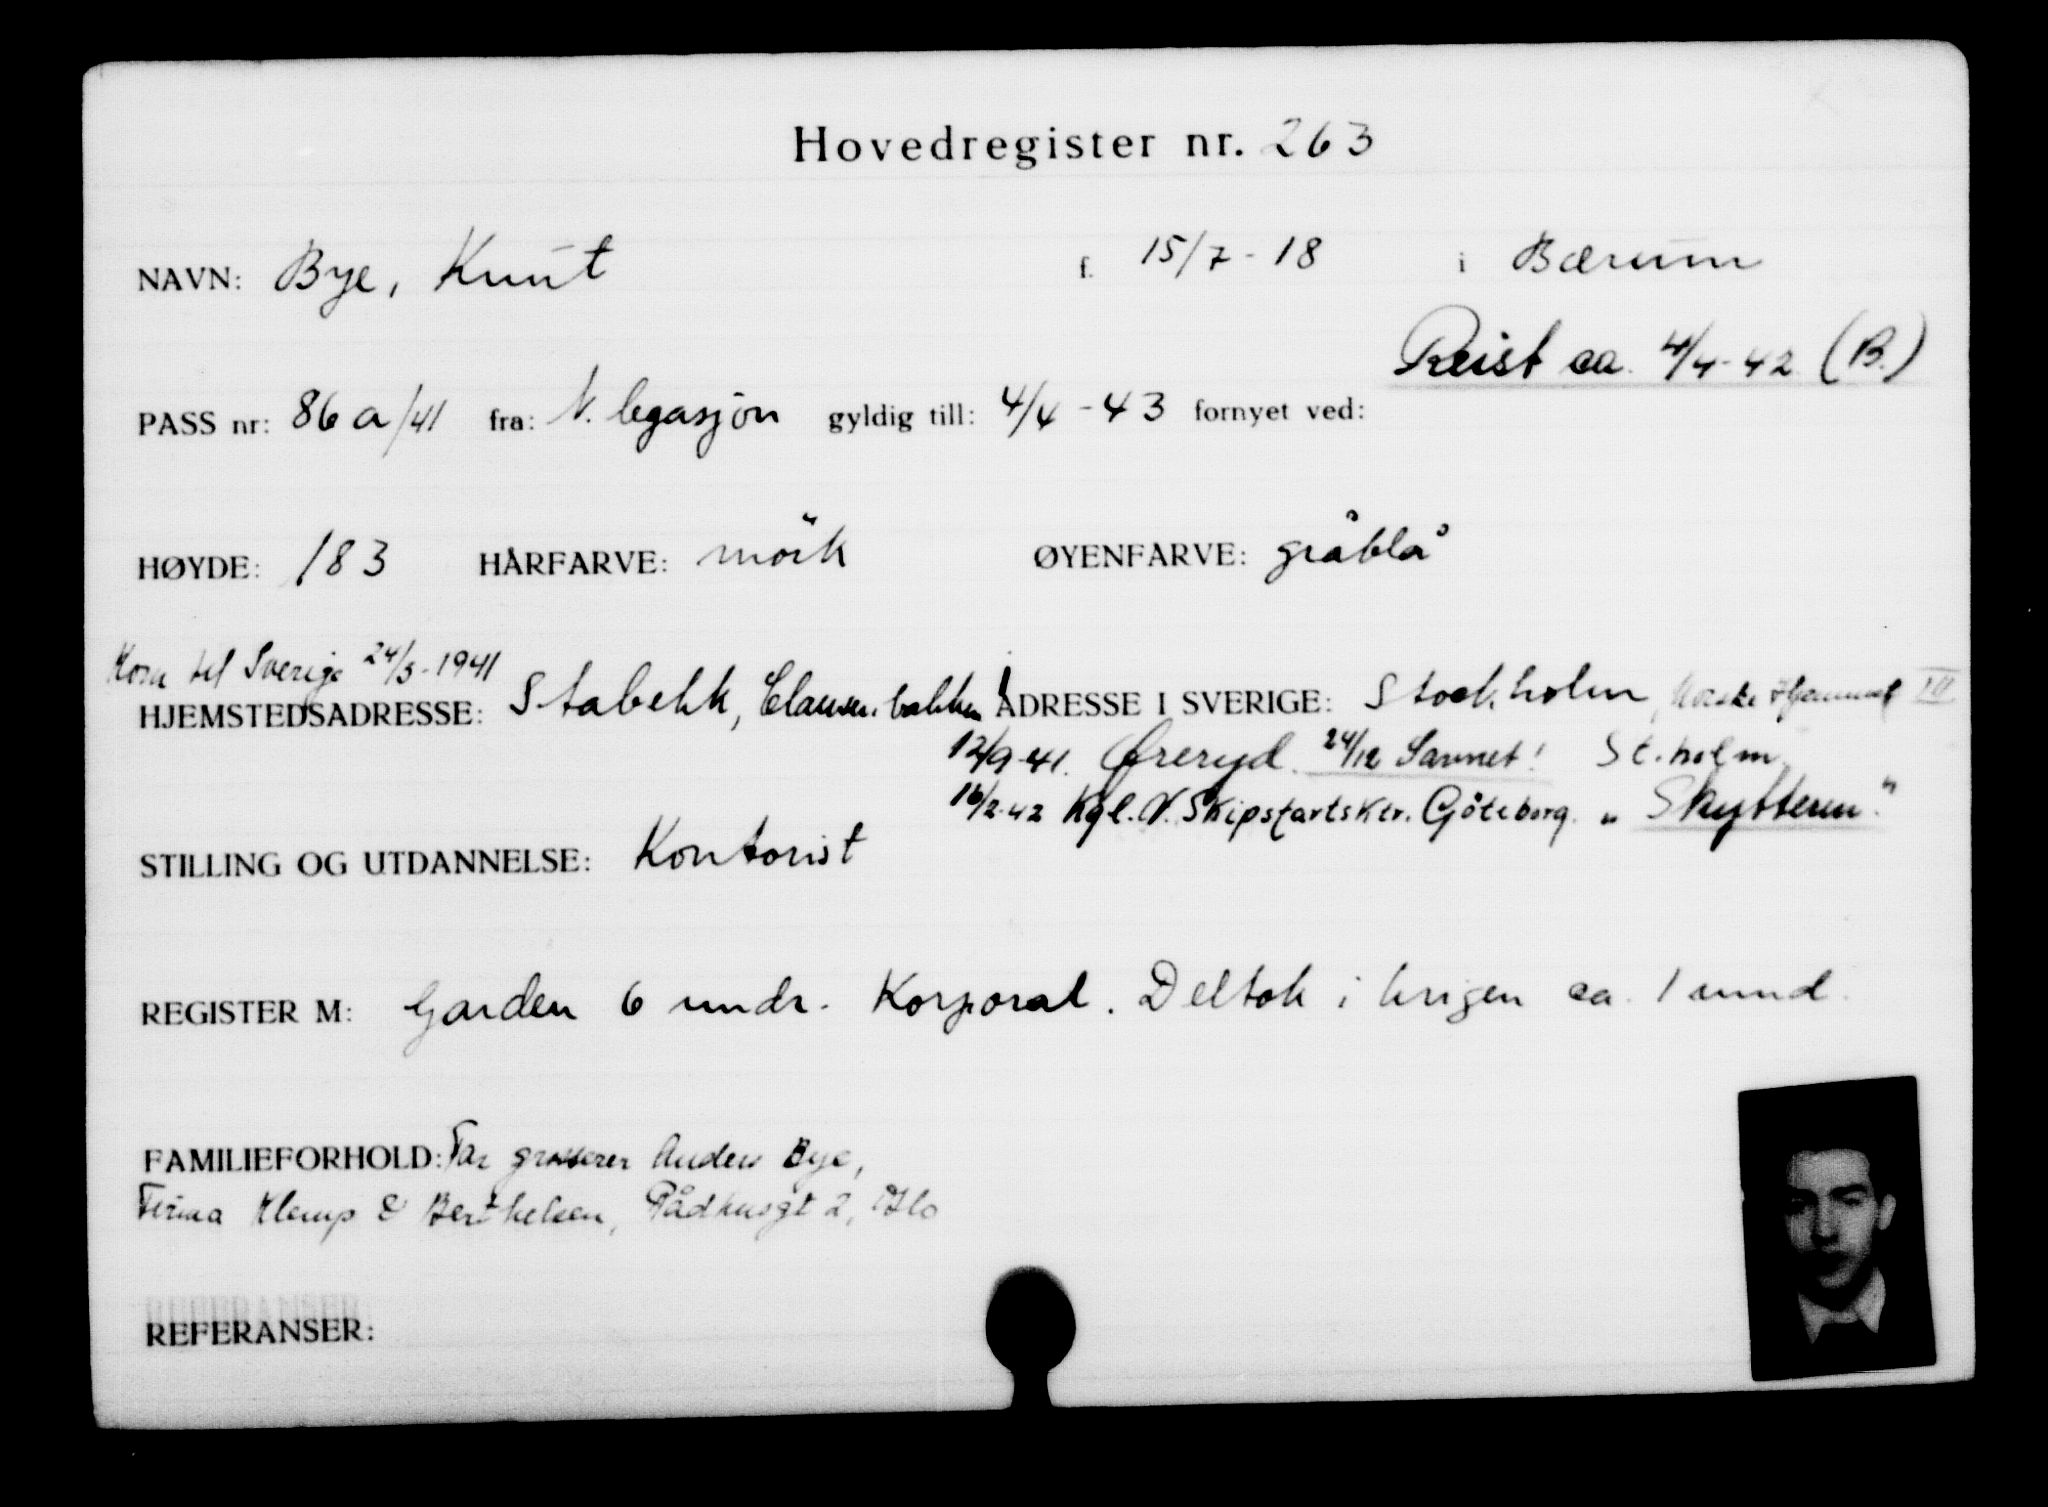 Hovedregister nr. 263
NAVN: Bye, Knut f. 15/7 - 18 i Bærum
Reist ca. 4/4-42 (B.)
PASS nr: 86 a/41 fra: N. legasjon gyldig till: 4/4 - 43 fornyet ved:
HØYDE: 183 HÅRFARVE: mörk ØYENFARVE: gråblå
Kom til Sverige 24/3-1941
HJEMSTEDSADRESSE: Stabekk, Clausenbakken ADRESSE I SVERIGE: Stockholm, Norske Hjemmet III
12/9-41. Öreryd. 24/12 Savnet! St.holm
16/2-42 Kgl. N. Skipsfartsktr. Göteborg. "Skytteren"
STILLING OG UTDANNELSE: Kontorist
REGISTER M: Garden 6 mndr. Korporal. Deltok i krigen ca. 1 mnd.
FAMILIEFORHOLD: Far grosserer Anders Bye,
Firma Klemp & Berthelsen, Rådhusgt 2, Oslo
REFERANSER: